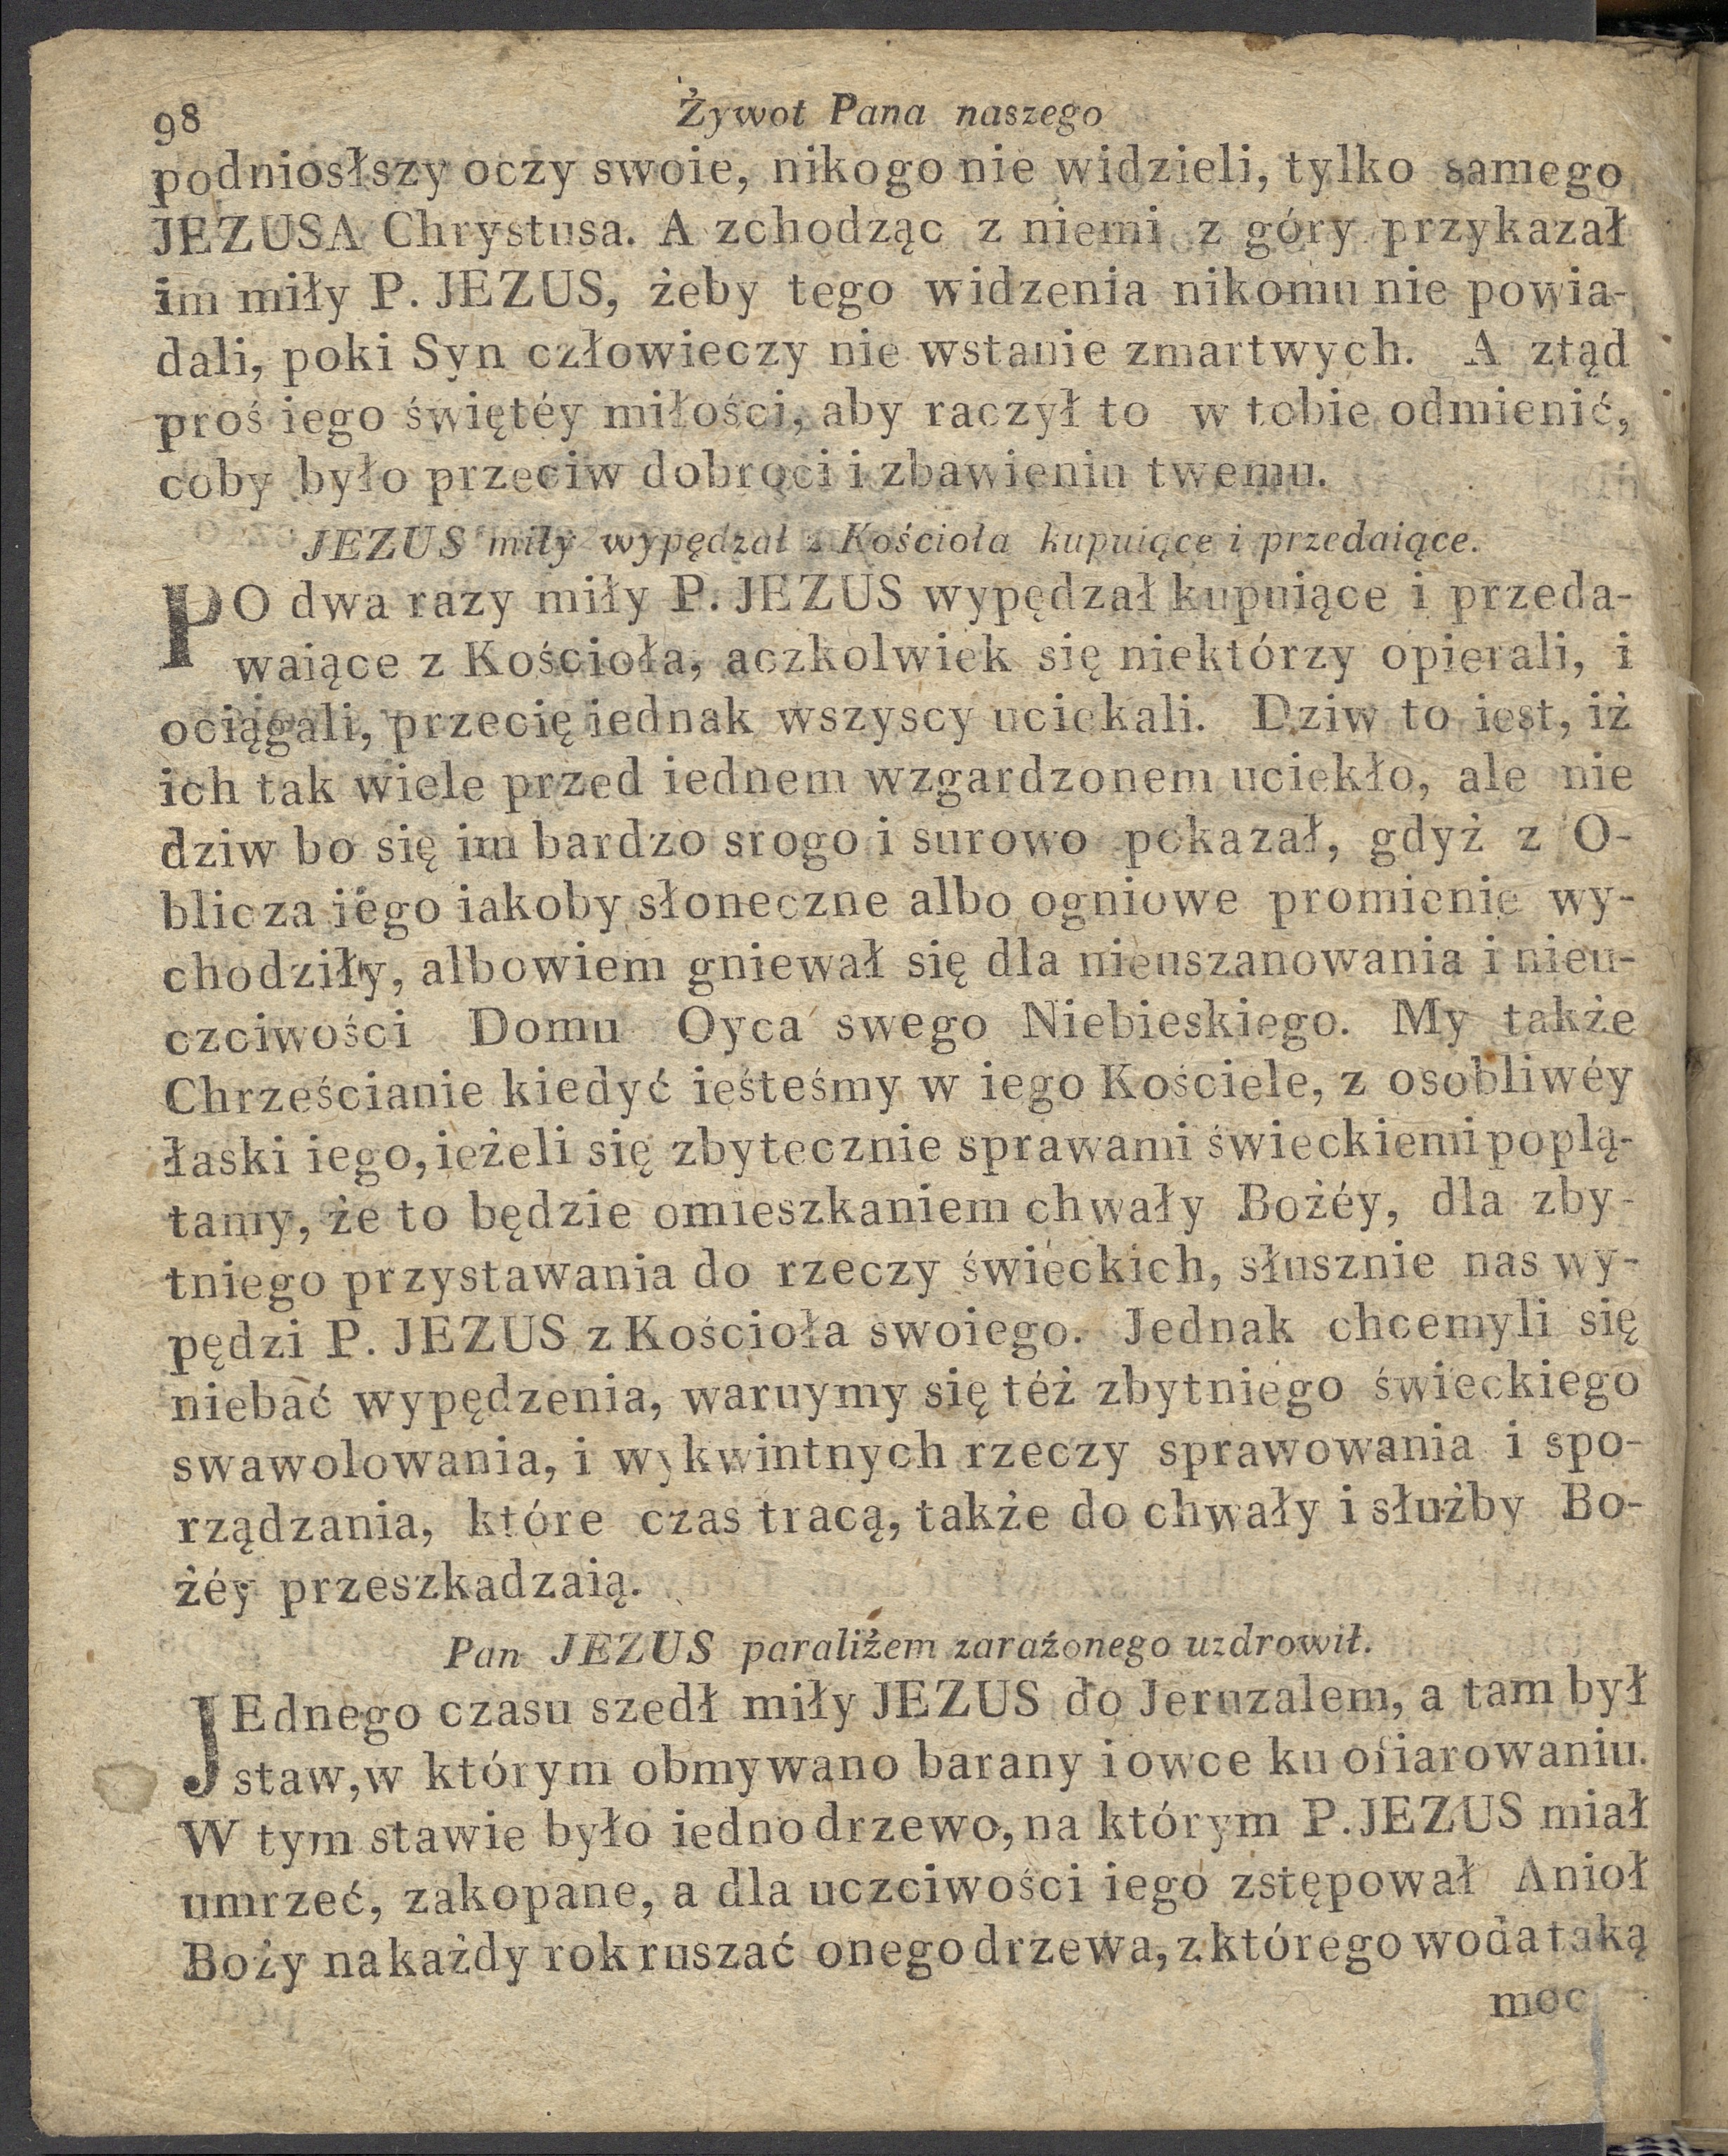 98 Żywot Pana naszego
podniosłszy oczy swoie, nikogo nie widzieli, tylko samego
JEZUSA Chrystusa. A zchodząc z niemi z góry przykazał
im miły P. JEZUS, żeby tego widzenia nikomu nie powia-
dali, poki Syn człowieczy nie wstanie zmartwych. A ztąd
proś iego świętéy miłości, aby raczył to w tobie odmienić,
coby było przeciw dobroci i zbawieniu twemu.
JEZUS miły wypędzał z Kościoła kupuiące i przedaiące.
PO dwa razy miły P. JEZUS wypędzał kupuiące i przeda-
waiące z Kościoła, aczkolwiek się niektórzy opierali, i
ociągali, przecię iednak wszyscy uciekali. Dziw to iest, iż
ich tak wiele przed iednem wzgardzonem uciekło, ale nie
dziw bo się im bardzo srogo i surowo pokazał, gdyż z O-
blicza iégo iakoby słoneczne albo ogniowe promienie wy-
chodziły, albowiem gniewał się dla nieuszanowania i nieu-
czciwości Domu Oyca swego Niebieskiego. My także
Chrześcianie kiedyć ieśteśmy w iego Kościele, z osobliwéy
łaski iego, ieżeli się zbytecznie sprawami świeckiemi poplą-
tamy, że to będzie omieszkaniem chwały Bożéy, dla zby-
tniego przystawania do rzeczy świeckich, słusznie nas wy-
pędzi P. JEZUS z Kościoła swoiego. Jednak chcemyli się
niebać wypędzenia, waruymy się téż zbytniego świeckiego
swawolowania, i wykwintnych rzeczy sprawowania i spo-
rządzania, które czas tracą, także do chwały i służby Bo-
żéy przeszkadzaią.
Pan JEZUS paraliżem zarażonego uzdrowił.
JEdnego czasu szedł miły JEZUS do Jeruzalem, a tam był
staw, w którym obmywano barany i owce ku ofiarowaniu.
W tym stawie było iedno drzewo, na którym P. JEZUS miał
umrzeć, zakopane, a dla uczciwości iego zstępował Anioł
Boży na każdy rok ruszać onego drzewa, z którego woda taką
moc